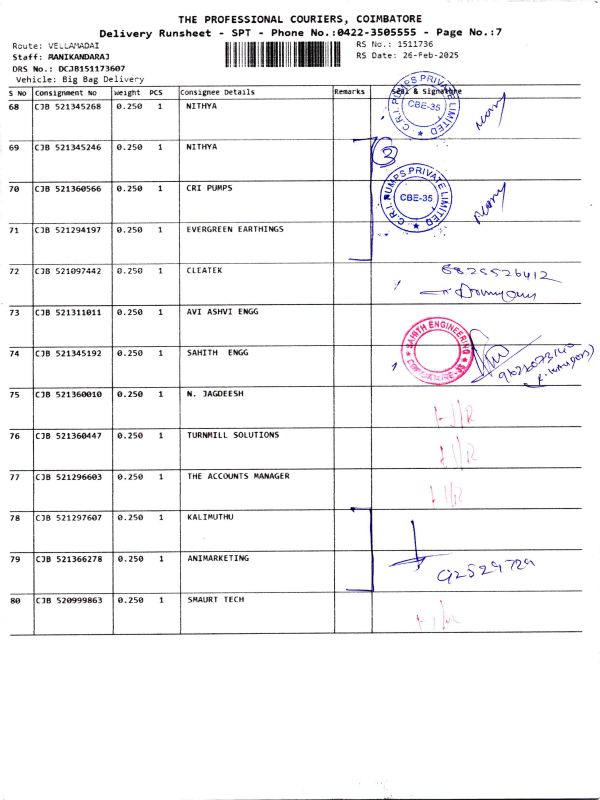 THE PROFESSIONAL COURIERS, COIMBATORE
Delivery Runsheet - SPT - Phone No.:0422-3505555 - Page No.:7
Route: VELLAMADAI
RS No.: 1511736
Staff: MANIKANDARAJ
RS Date: 26-Feb-2025
DRS No.: DCJB151173607
Vehicle: Big Bag Delivery
S No Consignment No Weight PCS Consignee Details Remarks Seal & Signature
68 CJB 521345268 0.250 1 NITHYA
C.R.I. PUMPS PRIVATE LIMITED CBE-35
69 CJB 521345246 0.250 1 NITHYA
3
70 CJB 521360566 0.250 1 CRI PUMPS
C.R.I. PUMPS PRIVATE LIMITED CBE-35
71 CJB 521294197 0.250 1 EVERGREEN EARTHINGS
72 CJB 521097442 0.250 1 CLEATEK
73 CJB 521311011 0.250 1 AVI ASHVI ENGG
74 CJB 521345192 0.250 1 SAHITH ENGG
75 CJB 521360010 1 0.250 1 N. JAGDEESH
76 CJB 521360447 0.250 1 TURNMILL SOLUTIONS
77 CJB 521296603 0.250 1 THE ACCOUNTS MANAGER
78 CJB 521297607 0.250 1 KALIMUTHU
79 CJB 521366278 0.250 1 ANIMARKETING
80 CJB 520999863 0.250 1 SMAURT TECH